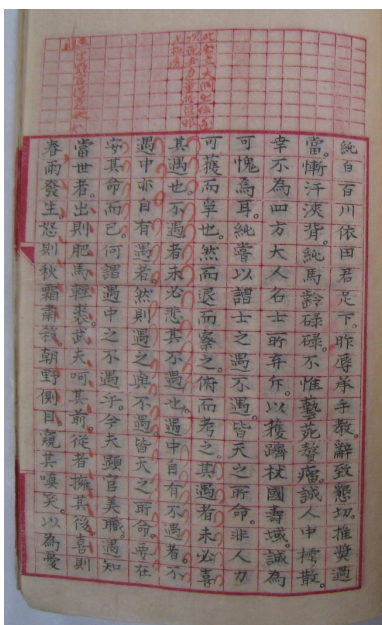 純白百川依田君足下。昨辱承手教。辭致懇切。推奬過
當。慚汗浹背。純馬齡碌碌。不惟藝苑贅瘤。誠人中樗散。
幸不為四方大人名士所弃斥。以獲躋杖國壽域。誠為
可愧焉耳。純嘗以謂士之遇不遇。皆天之所命。非人力
可獲而寧也。然而退而察之。俯而考之。其遇者未必喜
其遇也。不遇者未必悲其不遇也。遇中自有不遇者。不
遇中亦自有遇者。然則遇之與不遇皆天之所命。要在
安其命而已。何謂遇中之不遇乎。今夫顯官美職。遇知
當世者。出則肥馬輕裘。武夫呵其前。從者擁其後喜則
春雨發生。怒則秋霜肅殺。朝野側目。窺其嚬笑。以為憂